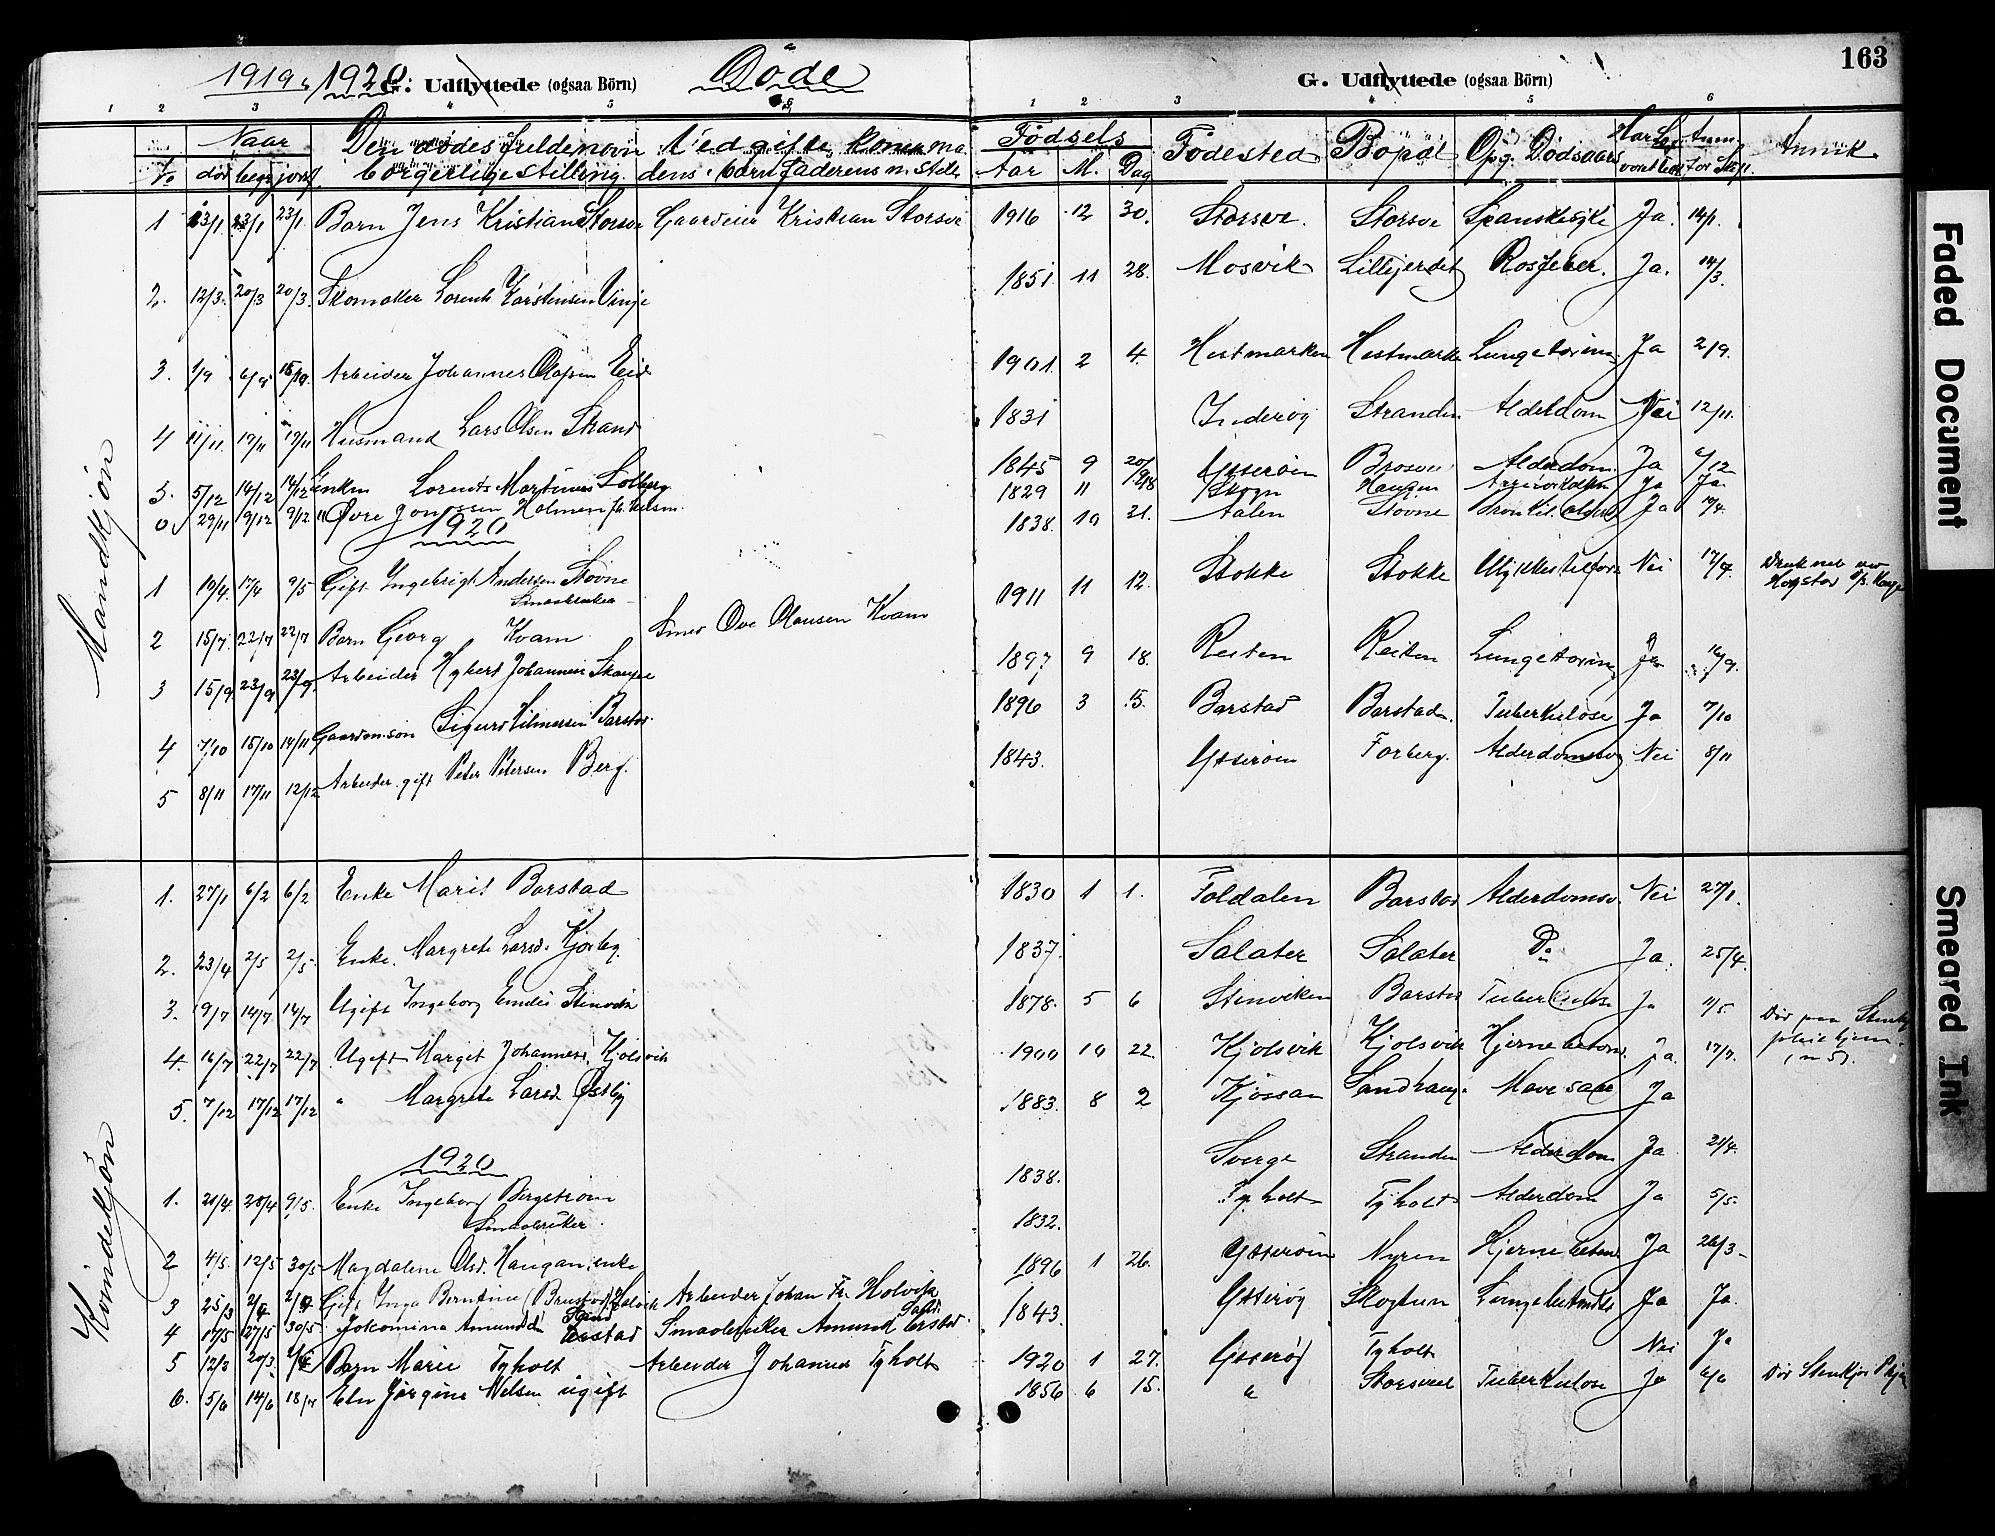 1919 & 1920 G. Udflyttede (ogsaa Börn) Døde
G. Udflyttede (ogsaa Börn)
163
1 2 3 4 5 6
1 2 3 4 5 6
Naar Den dødes fulde navn Ved gifte koner ma
No død begr. jordf. borgerlige stilling. dens. barn faderens n. still.
Fødsels Fødested Bopæl Opg. Dødsaars Har Læge Anm. Anmk.
Aar M. Dag været bedt for Skft.
Mandkjøn
1 13/1 23/1 23/1 Barn Jens Kristian Storsve Gaardeier Kristian Storsve 1916 12 30. Storsve. Storsve Spanskesyke Ja. 14/1.
2. 12/3. 20/3 20/3. Skomaker Lorents Karstensen Vinje 1851 11 28. Mosvik Lillejerdet Rosfeber. Ja. 14/3.
3. 1/9 6/9 15/9. Arbeider Johannes Olafsen Eid 1901. 2 4. Hestmarken Hestmarke Lungetæring Ja 2/9.
4 11/11. 17/11 17/11 Husmand Lars Olsen Strand 1831 Inderøy Stranden Alderdom Nei 12/11.
5. 5/12 14/12 14/12 Enkm Lorents Martinus Solberg 1845 9 20/9 Ytterøen Alderdom. Ja 6/12
6 29/11 9/12 9/12 Øvre Jonssen Holmen 1829 11 Skogn Haugen Ja Ja.
1920
1 10/4. 17/4 9/5 Gift Ingebrigt Andersen Stovne 1838. 10 21. Aalen Stovne Ja 10/4.
Smaabruker
2 15/7. 22/7 22/7 Barn Georg Kvam Smed Ove Olausen Kvam 1911 11 12. Stokke Stokke Ulykkestilfælde Nei 17/7. Druknet
3 15/9 23/9 23/9. Arbeider Hybert Johannesen 1897 9 18. Reiten Reiten Lungetæring Ja 16/9.
4 7/10 15/10 14/11 Gaardm.søn Sigurd Hilmersen Barstad. 1896 3 15. Barstad Barstad. Tuberkulose Ja 7/10
5 8/11 17/11 12/12 Arbeider gift Peter Petersen Berg. 1843. Ytterøen Forberg. Alderdomssv. Nei 8/11
Kvindekjøn
1. 27/1 6/2 6/2 Enke Marit Barstad 1830 1 1. Foldalen Barstad Alderdomssv. Nei 27/1.
2. 23/4 2/5 2/5. Enke. Margrete Larsd. 1837. Salater Salater Do Ja. 25/4.
3. 9/7 14/7 14/7 Ugift Ingeborg Emilie Stenvik 1878. 5 6 Stenviken Barstad Tuberkulose Ja 11/5. Død paa Stenkj.
4. 16/7 22/7 22/7 Ugift Margit Johannesd. Kjølsvik 1900 10 22. Kjølsvik Kjølsvik Hjernebetænd. Ja. 17/7. pleiehjem. (n 5).
5. 7/12 17/12 17/12 " Margrete Larsd. Østby 1883. 8 2 Kjøssan Sandhaug. Mavesaar Ja
1920
1. 21/4 28/4 9/5. Enke Ingeborg Bergstrøm 1838. Sverge Stranden Alderdom Ja 21/4.
Smaabruker.
2 4/5. 12/5 30/5 Magdalene Olsd. Haugan. enke 1832. Tyholt Tyholt Alderdom Ja 5/5.
3 25/3 2/4 2/4 Gift Inga Berntine Holvik Arbeider Johan Fr. Holvik 1896 1 26. Ytterøen Nyren Hjernebetænd. Ja 26/3
4 17/5 27/5 30/5 Jokomina Amundsd. Smaabruker Amund 1843. Ytterøy Skogtun Ja Ja.
5 12/3 20/3. 2/4 Barn Marie Tyholt Arbeider Johannes Tyholt 1920 1 27. Ytterøy Tyholt Nei Ja
6. 5/6 14/6 18/7 Elen Jørgine Nilsen ugift 1856 6 15. " Tuberkulose Ja 6/6 Død Stenkjær
Faded Document
Smeared Ink